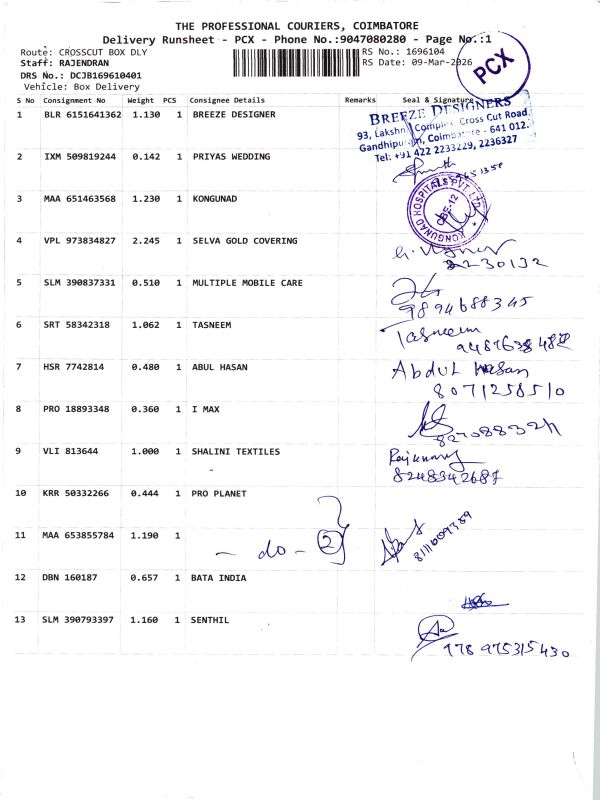 THE PROFESSIONAL COURIERS, COIMBATORE
Delivery Runsheet - PCX - Phone No.:9047080280 - Page No.:1
Route: CROSSCUT BOX DLY
RS No.: 1696104
Staff: RAJENDRAN
RS Date: 09-Mar-2026
DRS No.: DCJB169610401
Vehicle: Box Delivery
PCX
S No Consignment No Weight PCS Consignee Details Remarks Seal & Signature
1 BLR 6151641362 1.130 1 BREEZE DESIGNER
BREEZE DESIGNERS
93, Lakshmi Complex, Cross Cut Road,
Gandhipuram, Coimbatore - 641 012.
Tel: +91 422 2233229, 2236327
2 IXM 509819244 0.142 1 PRIYAS WEDDING
3 MAA 651463568 1.230 1 KONGUNAD
KONGUNAD HOSPITALS PVT. LTD.
CBE-12
4 VPL 973834827 2.245 1 SELVA GOLD COVERING
2230132
5 SLM 390837331 0.510 1 MULTIPLE MOBILE CARE
9894688345
6 SRT 58342318 1.062 1 TASNEEM
Tasneem
7 HSR 7742814 0.480 1 ABUL HASAN
Abdul Hasan
8071258510
8 PRO 18893348 0.360 1 I MAX
9 VLI 813644 1.000 1 SHALINI TEXTILES
8248342687
10 KRR 50332266 0.444 1 PRO PLANET
11 MAA 653855784 1.190 1
- do - 2
12 DBN 160187 0.657 1 BATA INDIA
13 SLM 390793397 1.160 1 SENTHIL